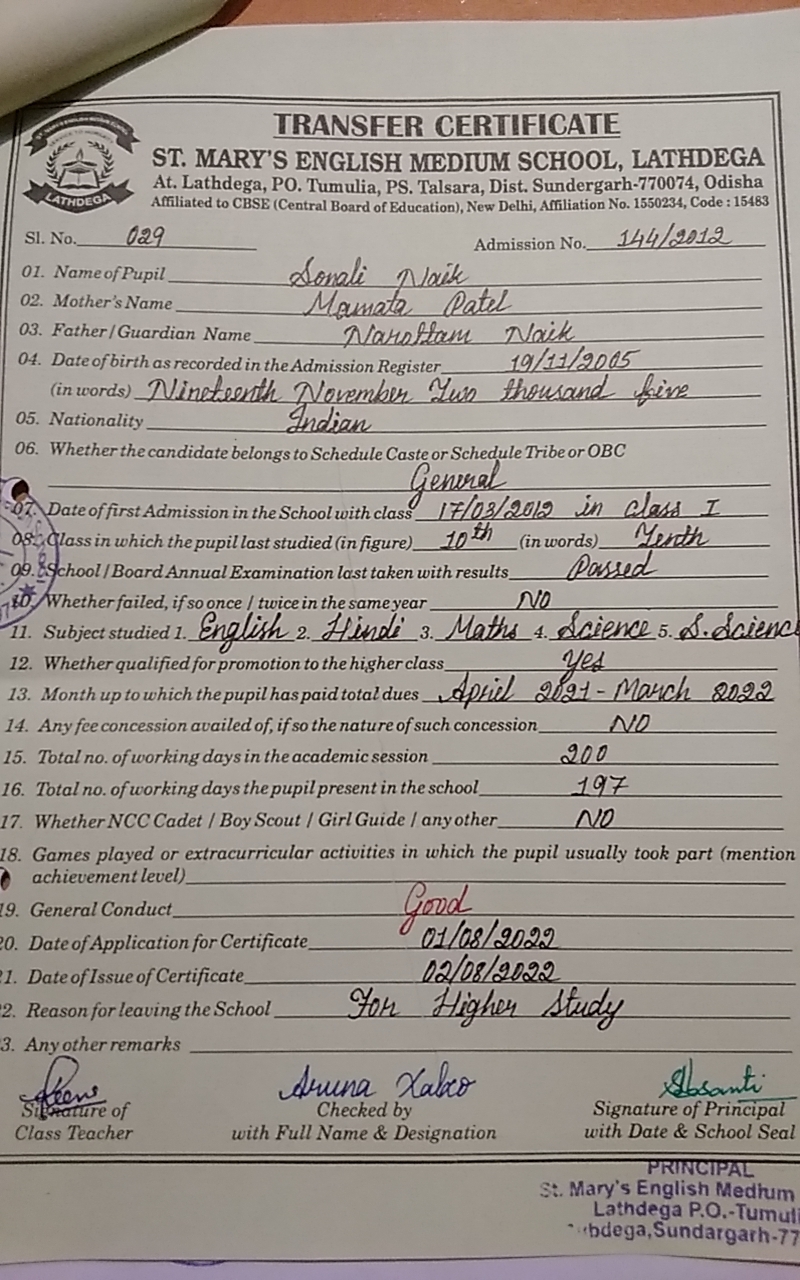 TRANSFER CERTIFICATE
ST. MARY'S ENGLISH MEDIUM SCHOOL, LATHDEGA
At. Lathdega, PO. Tumulia, PS. Talsara, Dist. Sundergarh-770074, Odisha
Affiliated to CBSE (Central Board of Education), New Delhi, Affiliation No. 1550234, Code : 15483
LATHDEGA
Sl. No. 029 Admission No. 144/2012
01. Name of Pupil Sonali Naik
02. Mother's Name Mamata Patel
03. Father / Guardian Name Narottam Naik
04. Date of birth as recorded in the Admission Register 19/11/2005
(in words) Nineteenth November Two thousand five
05. Nationality Indian
06. Whether the candidate belongs to Schedule Caste or Schedule Tribe or OBC
General
07. Date of first Admission in the School with class 17/03/2012 in class I
08. Class in which the pupil last studied (in figure) 10th (in words) Tenth
09. School / Board Annual Examination last taken with results Passed
10. Whether failed, if so once / twice in the same year NO
11. Subject studied 1. English 2. Hindi 3. Maths 4. Science 5. S. Scienc
12. Whether qualified for promotion to the higher class Yes
13. Month up to which the pupil has paid total dues April 2021 - March 2022
14. Any fee concession availed of, if so the nature of such concession NO
15. Total no. of working days in the academic session 200
16. Total no. of working days the pupil present in the school 197
17. Whether NCC Cadet / Boy Scout / Girl Guide / any other NO
18. Games played or extracurricular activities in which the pupil usually took part (mention
achievement level)
19. General Conduct Good
20. Date of Application for Certificate 01/08/2022
21. Date of Issue of Certificate 02/08/2022
2. Reason for leaving the School For Higher Study
3. Any other remarks
Aruna Xalxo
Signature of Checked by Signature of Principal
Class Teacher with Full Name & Designation with Date & School Seal
PRINCIPAL
St. Mary's English Medium
Lathdega P.O.-Tumuli
bdega, Sundargarh-77